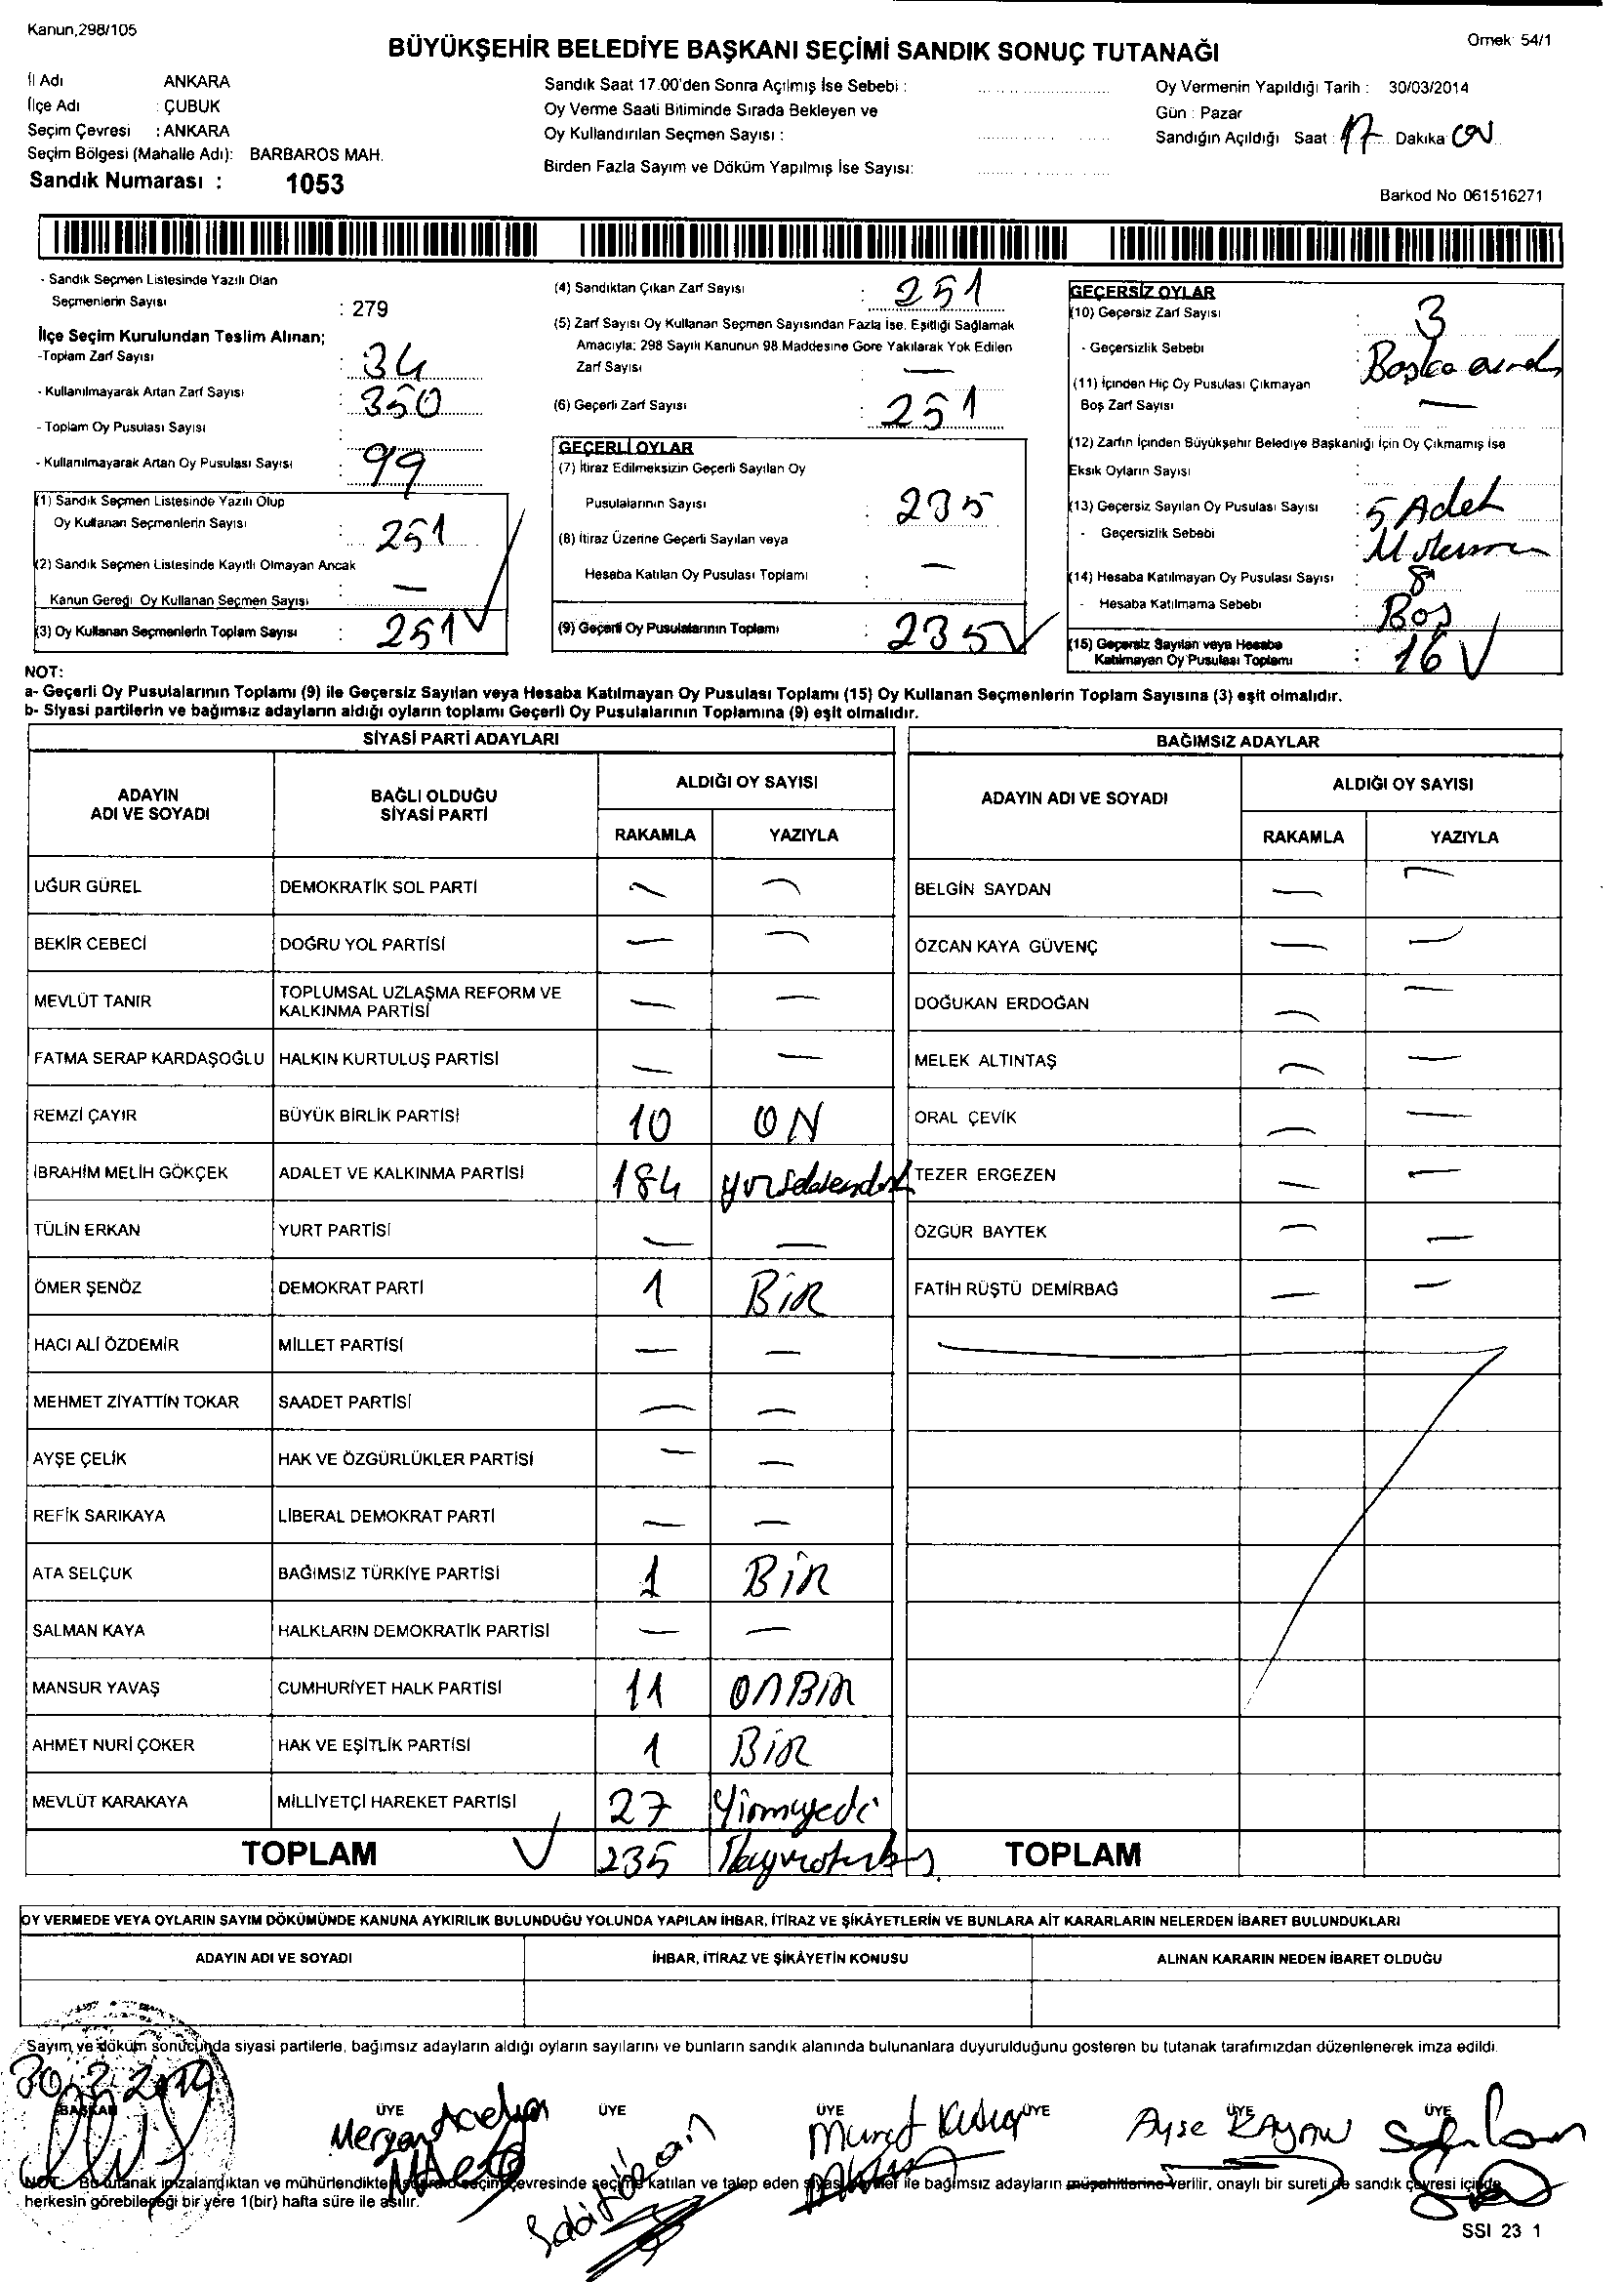 Kanun,298/105
Örnek 54/1
BÜYÜKŞEHİR BELEDİYE BAŞKANI SEÇİMİ SANDIK SONUÇ TUTANAĞI
İl Adı ANKARA
İlçe Adı : ÇUBUK
Seçim Çevresi : ANKARA
Seçim Bölgesi (Mahalle Adı): BARBAROS MAH.
Sandık Numarası : 1053
Sandık Saat 17.00'den Sonra Açılmış İse Sebebi :
Oy Verme Saati Bitiminde Sırada Bekleyen ve
Oy Kullandırılan Seçmen Sayısı :
Birden Fazla Sayım ve Döküm Yapılmış İse Sayısı:
Oy Vermenin Yapıldığı Tarih : 30/03/2014
Gün : Pazar
Sandığın Açıldığı Saat : 17 Dakika ON
Barkod No 061516271
- Sandık Seçmen Listesinde Yazılı Olan
Seçmenlerin Sayısı : 279
İlçe Seçim Kurulundan Teslim Alınan;
-Toplam Zarf Sayısı : 34
- Kullanılmayarak Artan Zarf Sayısı : 350
- Toplam Oy Pusulası Sayısı :
- Kullanılmayarak Artan Oy Pusulası Sayısı : 99
(1) Sandık Seçmen Listesinde Yazılı Olup
Oy Kullanan Seçmenlerin Sayısı : 251
(2) Sandık Seçmen Listesinde Kayıtlı Olmayan Ancak
Kanun Gereği Oy Kullanan Seçmen Sayısı : —
(3) Oy Kullanan Seçmenlerin Toplam Sayısı : 251
(4) Sandıktan Çıkan Zarf Sayısı : 251
(5) Zarf Sayısı Oy Kullanan Seçmen Sayısından Fazla İse, Eşitliği Sağlamak
Amacıyla; 298 Sayılı Kanunun 98.Maddesine Göre Yakılarak Yok Edilen
Zarf Sayısı —
(6) Geçerli Zarf Sayısı : 251
GEÇERLİ OYLAR
(7) İtiraz Edilmeksizin Geçerli Sayılan Oy
Pusulalarının Sayısı : 235
(8) İtiraz Üzerine Geçerli Sayılan veya
Hesaba Katılan Oy Pusulası Toplamı : —
(9) Geçerli Oy Pusulalarının Toplamı : 235
GEÇERSİZ OYLAR
(10) Geçersiz Zarf Sayısı : 3
- Geçersizlik Sebebi : Başka
(11) İçinden Hiç Oy Pusulası Çıkmayan
Boş Zarf Sayısı : —
(12) Zarfın İçinden Büyükşehir Belediye Başkanlığı İçin Oy Çıkmamış İse
Eksik Oyların Sayısı :
(13) Geçersiz Sayılan Oy Pusulası Sayısı : 5 Adet
- Geçersizlik Sebebi :
(14) Hesaba Katılmayan Oy Pusulası Sayısı : 8
- Hesaba Katılmama Sebebi : Boş
(15) Geçersiz Sayılan veya Hesaba
Katılmayan Oy Pusulası Toplamı : 16
NOT:
a- Geçerli Oy Pusulalarının Toplamı (9) ile Geçersiz Sayılan veya Hesaba Katılmayan Oy Pusulası Toplamı (15) Oy Kullanan Seçmenlerin Toplam Sayısına (3) eşit olmalıdır.
b- Siyasi partilerin ve bağımsız adayların aldığı oyların toplamı Geçerli Oy Pusulalarının Toplamına (9) eşit olmalıdır.
SİYASİ PARTİ ADAYLARI
ADAYIN ADI VE SOYADI BAĞLI OLDUĞU SİYASİ PARTİ ALDIĞI OY SAYISI
RAKAMLA YAZIYLA
UĞUR GÜREL DEMOKRATİK SOL PARTİ — —
BEKİR CEBECİ DOĞRU YOL PARTİSİ — —
MEVLÜT TANIR TOPLUMSAL UZLAŞMA REFORM VE KALKINMA PARTİSİ — —
FATMA SERAP KARDAŞOĞLU HALKIN KURTULUŞ PARTİSİ — —
REMZİ ÇAYIR BÜYÜK BİRLİK PARTİSİ 10 ON
İBRAHİM MELİH GÖKÇEK ADALET VE KALKINMA PARTİSİ 184 yüzseksendört
TÜLİN ERKAN YURT PARTİSİ — —
ÖMER ŞENÖZ DEMOKRAT PARTİ 1 BİR
HACI ALİ ÖZDEMİR MİLLET PARTİSİ — —
MEHMET ZİYATTİN TOKAR SAADET PARTİSİ — —
AYŞE ÇELİK HAK VE ÖZGÜRLÜKLER PARTİSİ — —
REFİK SARIKAYA LİBERAL DEMOKRAT PARTİ — —
ATA SELÇUK BAĞIMSIZ TÜRKİYE PARTİSİ 1 BİR
SALMAN KAYA HALKLARIN DEMOKRATİK PARTİSİ — —
MANSUR YAVAŞ CUMHURİYET HALK PARTİSİ 11 ONBİR
AHMET NURİ ÇOKER HAK VE EŞİTLİK PARTİSİ 1 BİR
MEVLÜT KARAKAYA MİLLİYETÇİ HAREKET PARTİSİ 27 Yirmiyedi
TOPLAM 235 İkiyüzotuzbeş
BAĞIMSIZ ADAYLAR
ADAYIN ADI VE SOYADI ALDIĞI OY SAYISI
RAKAMLA YAZIYLA
BELGİN SAYDAN — —
ÖZCAN KAYA GÜVENÇ — —
DOĞUKAN ERDOĞAN — —
MELEK ALTINTAŞ — —
ORAL ÇEVİK — —
TEZER ERGEZEN — —
ÖZGÜR BAYTEK — —
FATİH RÜŞTÜ DEMİRBAĞ — —
TOPLAM
OY VERMEDE VEYA OYLARIN SAYIM DÖKÜMÜNDE KANUNA AYKIRILIK BULUNDUĞU YOLUNDA YAPILAN İHBAR, İTİRAZ VE ŞİKÂYETLERİN VE BUNLARA AİT KARARLARIN NELERDEN İBARET BULUNDUKLARI
ADAYIN ADI VE SOYADI İHBAR, İTİRAZ VE ŞİKÂYETİN KONUSU ALINAN KARARIN NEDEN İBARET OLDUĞU
Sayım ve döküm sonucunda siyasi partilerle, bağımsız adayların aldığı oyların sayılarını ve bunların sandık alanında bulunanlara duyurulduğunu gösteren bu tutanak tarafımızdan düzenlenerek imza edildi.
30.3.2014
BAŞKAN ÜYE ÜYE ÜYE ÜYE ÜYE ÜYE
Murat Ayşe
NOT: Bu tutanak imzalandıktan ve mühürlendikten seçim çevresinde seçime katılan ve talep eden siyasi partiler ile bağımsız adayların müşahitlerine verilir, onaylı bir sureti de sandık çevresi içinde
herkesin görebileceği bir yere 1(bir) hafta süre ile asılır.
SSI 23 1